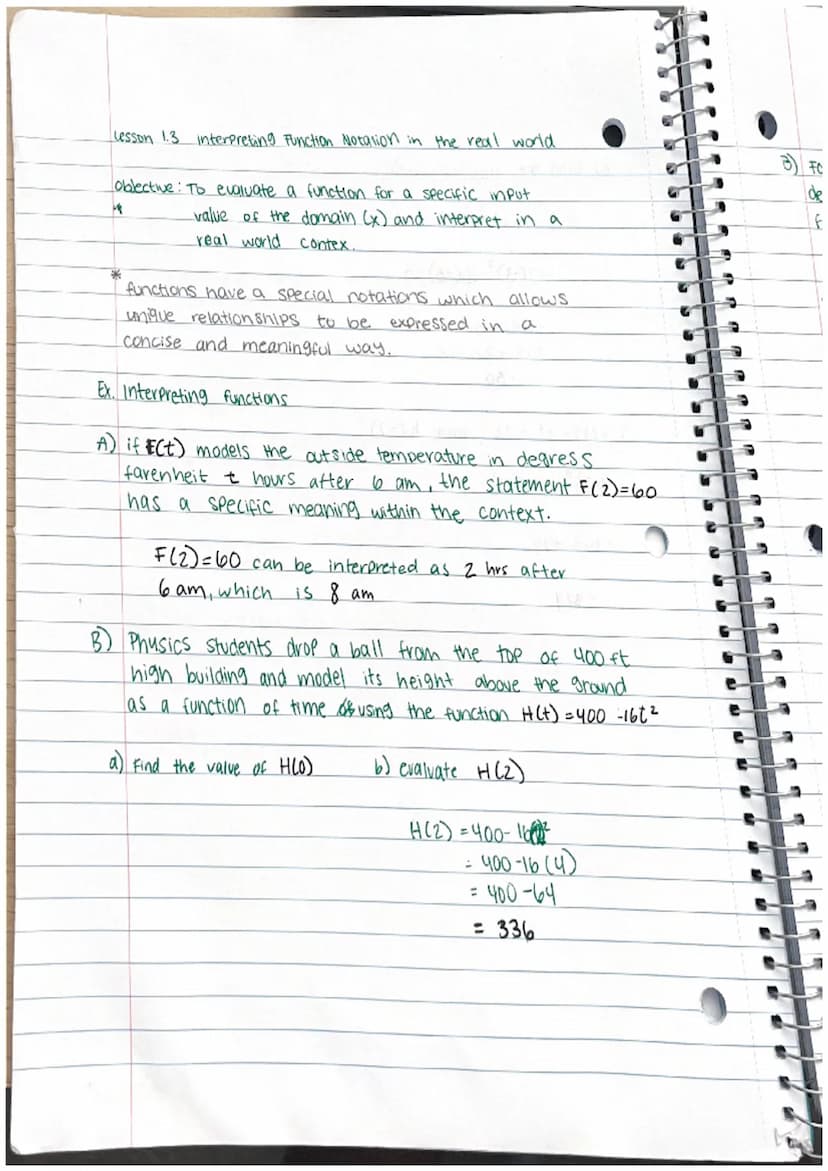 Lesson 1.3 Interpreting Function Notation in the real world
Objective: To evaluate a function for a specific input
value of the domain (x) and interpret in a
real world contex.
*
functions have a special notations which allows
unique relationships to be expressed in a
concise and meaningful way.
Ex. Interpreting functions
A) if F(t) models the outside temperature in degress
farenheit t hours after 6 am, the statement F(2)=60
has a specific meaning within the context.
F(2)=60 can be interpreted as 2 hrs after
6 am, which is 8 am
B) Physics students drop a ball from the top of 400 ft
high building and model its height above the ground
as a function of time using the function H(t) = 400 -16t²
a) Find the value of H(0) b) evaluate H(2)
H(2) = 400- 16
= 400 -16 (4)
= 400 -64
= 336
3) Fo
de
f